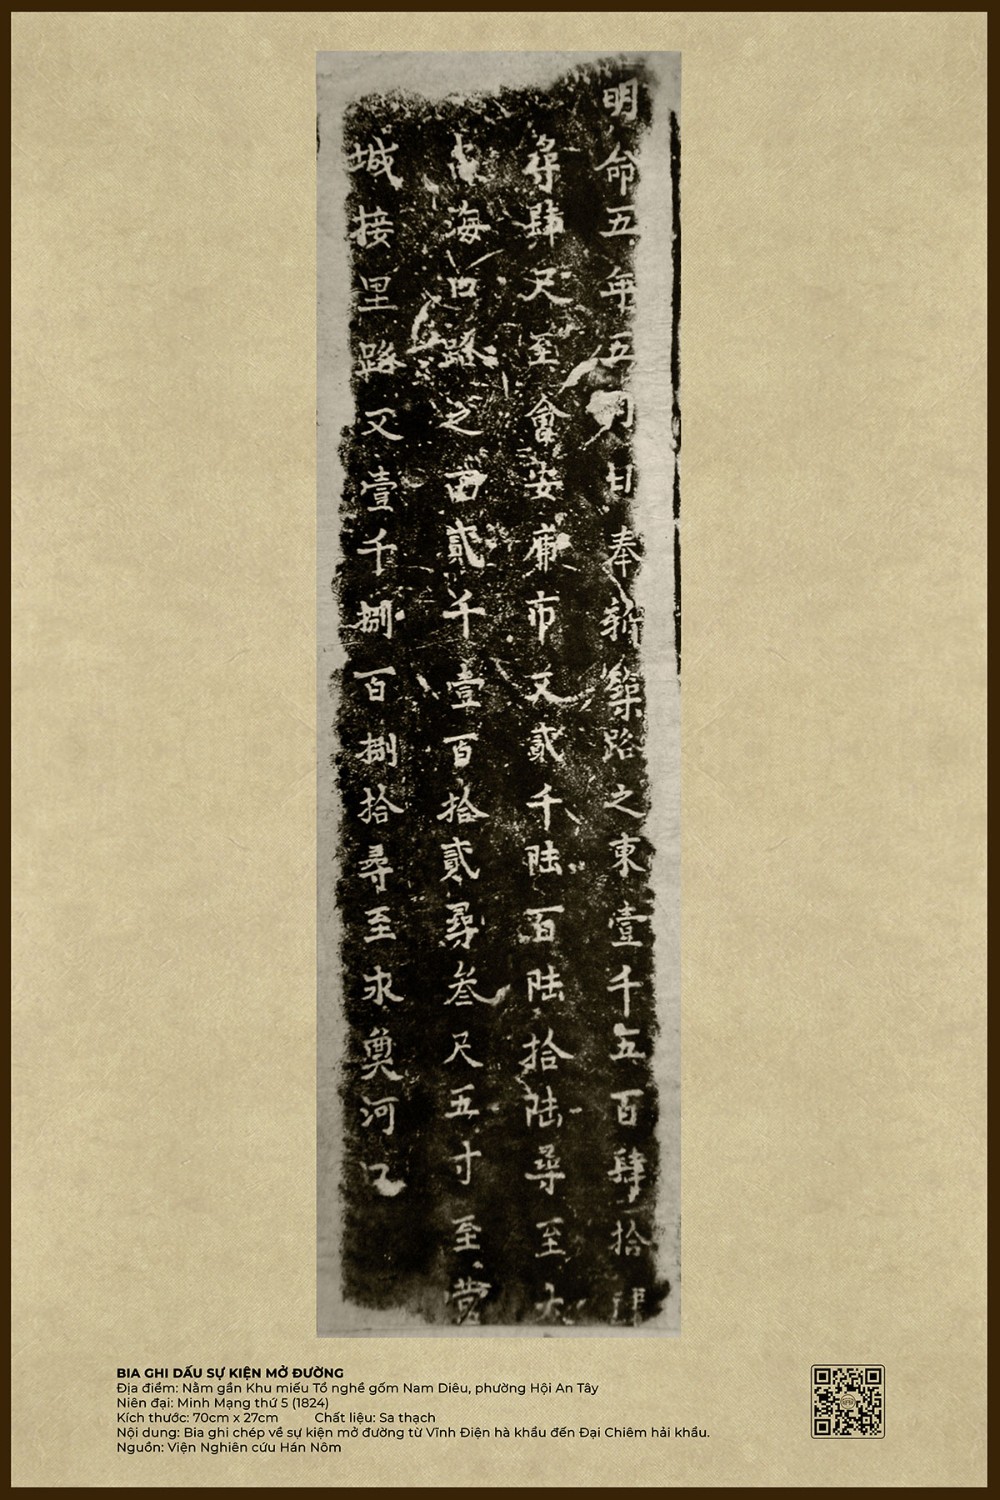 明命五年五月廿奉新築路之東壹千五百肆拾肆
尋肆尺至會安庯市又貳千陸百陸拾陸尋至大
占海口路之西貳千壹百拾貳尋叁尺五寸至營
城接里路又壹千捌百捌拾尋至永奠河口
BIA GHI DẤU SỰ KIỆN MỞ ĐƯỜNG
Địa điểm: Nằm gần Khu miếu Tổ nghề gốm Nam Diêu, phường Hội An Tây
Niên đại: Minh Mạng thứ 5 (1824)
Kích thước: 70cm x 27cm Chất liệu: Sa thạch
Nội dung: Bia ghi chép về sự kiện mở đường từ Vĩnh Điện hà khẩu đến Đại Chiêm hải khẩu.
Nguồn: Viện Nghiên cứu Hán Nôm